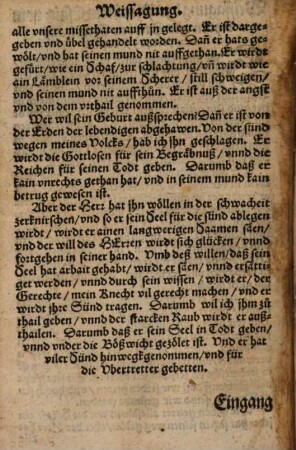 Weissagung.
alle unsere missethaten auff jn gelegt. Er ist darge-
geben vnd übel gehandelt worden. Dañ er hats ge-
wölt/ vnd hat seinen mund nit auffgethan. Er wirdt
gefürt/ wie ein Schaf/ zur schlachtung/ vñ wirdt wie
ain Lämblein vor seinem Scherer/ still schweigen/
vnd seinen mund nit auffthün. Er ist auß der angst
vnd von dem vrthail genommen.
Wer wil sein Geburt außsprechen? Dañ er ist von
der Erden der lebendigen abgehawen. Von der sünd
wegen meines Volcks/ hab ich jhn geschlagen. Er
wirdt die Gottlosen für sein Begräbnuß/ vnnd die
Reichen für seinen Todt geben. Darumb daß er
kain vnrechts gethan hat/ vnd in seinem mund kain
betrug gewesen ist.
Aber der Herr hat jhn wöllen in der schwacheit
zerknirschen/ vnd so er sein Seel für die sünd ablegen
wirdt/ wirdt er ainen langwerigen Saamen säen/
vnd der will des HErren wirdt sich glücken/ vnnd
fortgehen in seiner hand. Umb deß willen/ daß sein
Seel hat arbait gehabt/ wirdt er säen/ vnnd ersätti-
get werden/ vnnd durch sein wissen/ wirdt er/ der
Gerechte/ mein Knecht vil gerecht machen/ vnd er
wirdt jhre Sünd tragen. Darumb wil ich jhm zů
thail geben/ vnnd der starcken Raub wirdt er auß-
thailen. Darumb daß er sein Seel in Todt geben/
vnnd vnder die Bößwicht gezölet ist. Vnd er hat
viler Sünd hinwegkgenommen/ vnd für
die Vbertretter gebetten.
Eingang